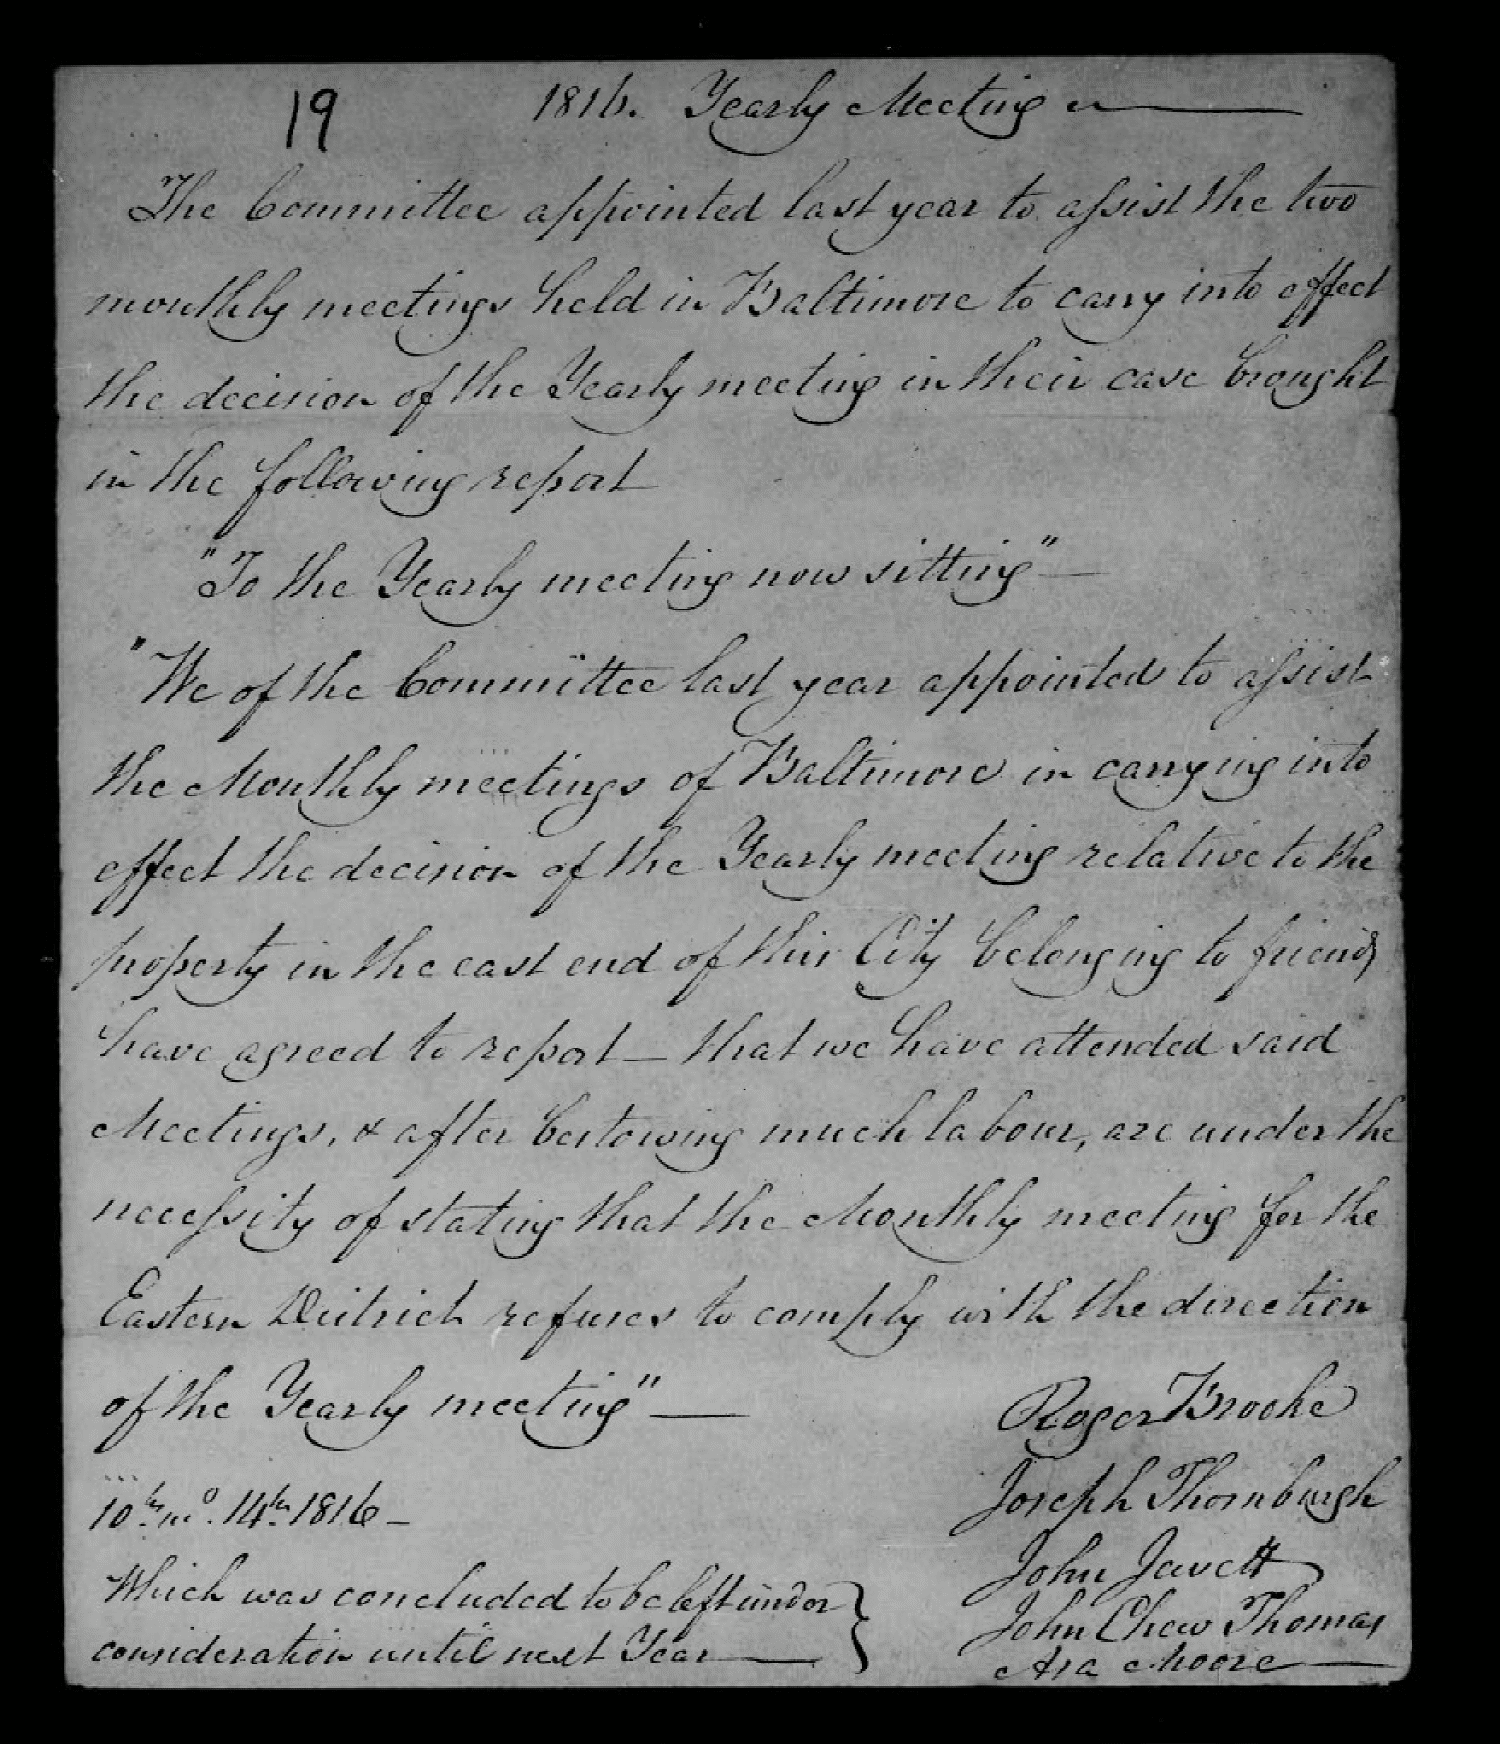 19
1816. Yearly Meeting
The Committee appointed last year to assist the two
monthly meetings held in Baltimore to carry into effect
the decision of the Yearly meeting in their case brought
in the following report
"To the Yearly meeting now sitting" —
"We of the Committee last year appointed to assist
the Monthly meetings of Baltimore in carrying into
effect the decision of the Yearly meeting relative to the
property in the east end of this City belonging to friends
have agreed to report — that we have attended said
Meetings, & after bestowing much labour, are under the
necessity of stating that the Monthly meeting for the
Eastern District refuses to comply with the direction
of the Yearly meeting" —
Roger Brooke
Joseph Thornburgh
John Jewett
John Chew Thomas
Asa Moore —
10th mo. 14th 1816 —
Which was concluded to be left under
consideration until next Year —